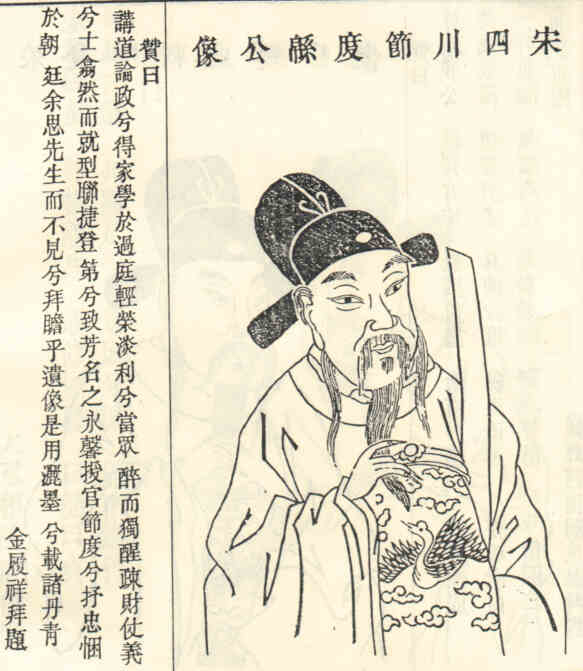 宋四川節度公像
贊曰
講道論政兮得家學於過庭輕榮淡利兮當眾醉而獨醒疎財仗義
兮士翕然而就型聯捷登第兮致芳名之永馨授官節度兮抒忠悃
於朝廷余思先生而不見兮拜瞻乎遺像是用灑墨兮載諸丹青
金履祥拜題